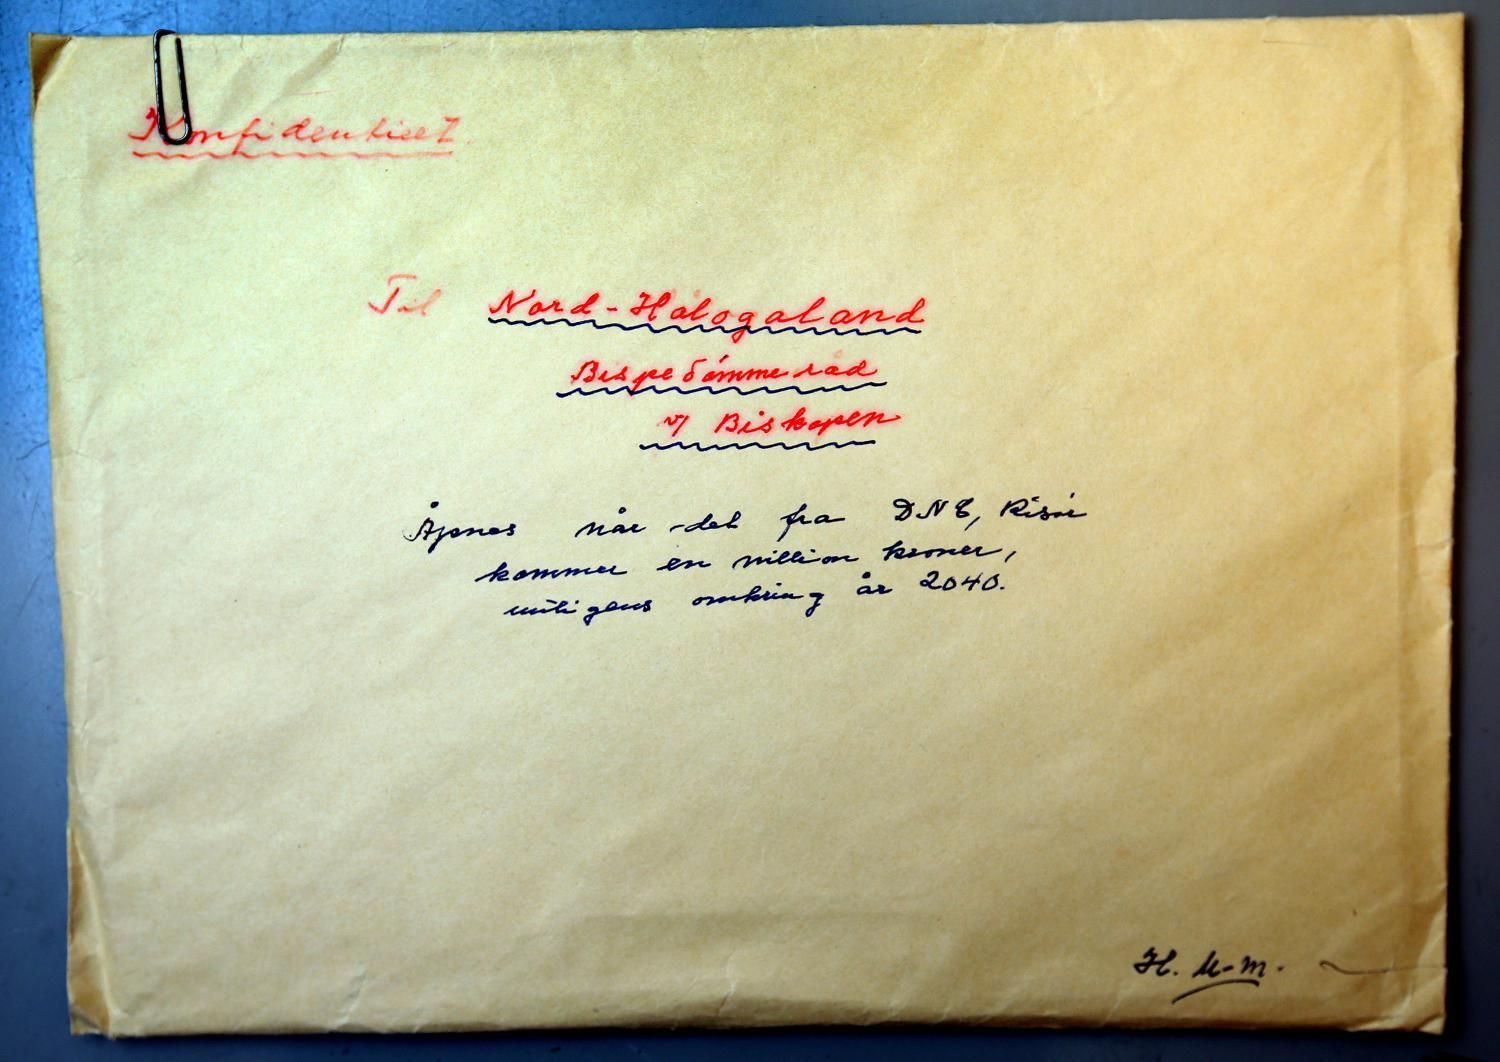 Konfidensielt
Til Nord-Hålogaland
Bispedømmeråd
v/ Biskopen
Åpnes når det fra DNB, Risør
kommer en million kroner,
muligens omkring år 2040.
H. M-M.